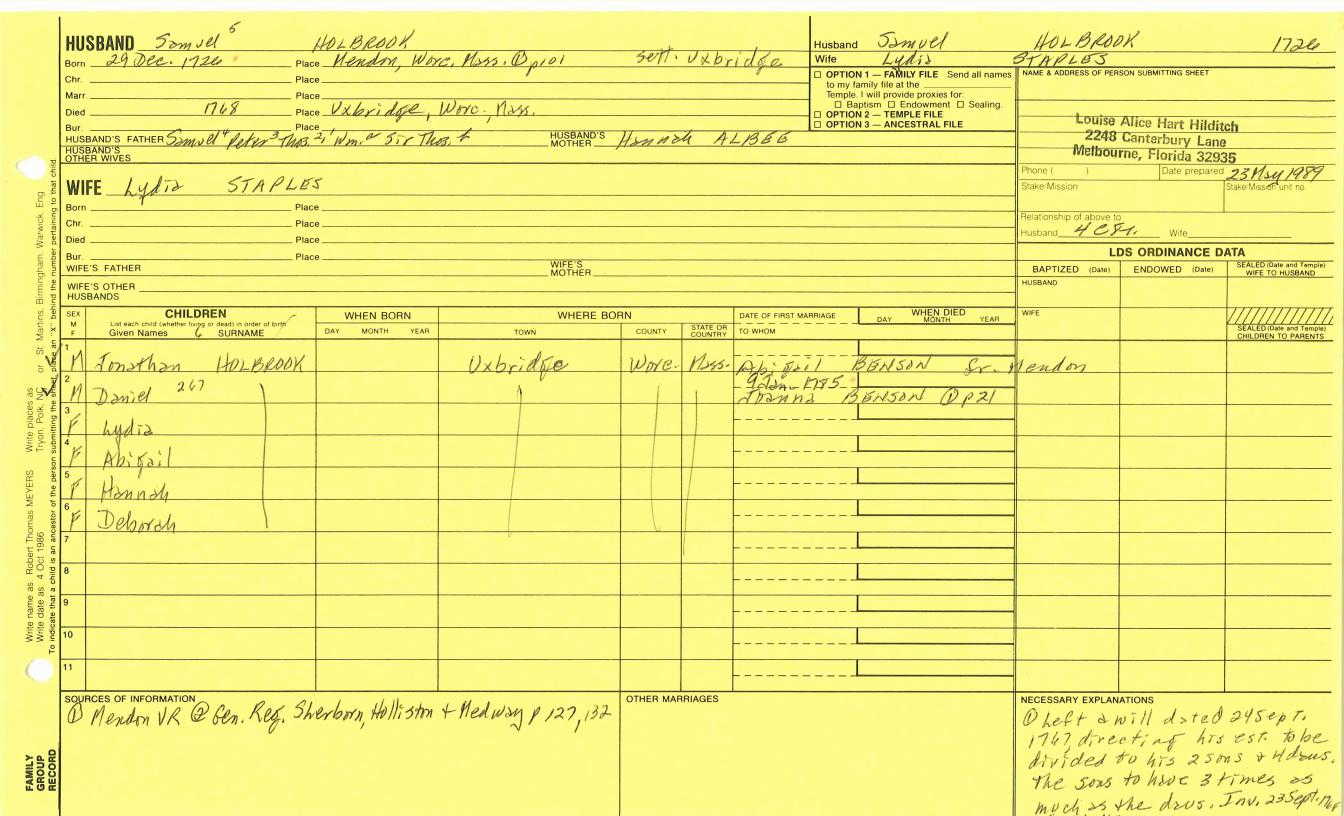 HUSBAND Samuel 5 HOLBROOK
Born 29 Dec. 1726 Place Mendon, Worc. Mass. ① p101 sett. Uxbridge
Chr. Place
Marr Place
Died 1768 Place Uxbridge, Worc., Mass.
Bur. Place
HUSBAND'S FATHER Samuel 4 Peter 3 Thos. 2, 1 Wm. a Sir Thos.
HUSBAND'S MOTHER Hannah ALBEE
HUSBAND'S OTHER WIVES
WIFE Lydia STAPLES
Born Place
Chr. Place
Died Place
Bur. Place
WIFE'S FATHER
WIFE'S MOTHER
WIFE'S OTHER HUSBANDS
Husband Samuel HOLBROOK 1726
Wife Lydia STAPLES
☐ OPTION 1 — FAMILY FILE Send all names
to my family file at the
Temple. I will provide proxies for:
☐ Baptism ☐ Endowment ☐ Sealing.
☐ OPTION 2 — TEMPLE FILE
☐ OPTION 3 — ANCESTRAL FILE
NAME & ADDRESS OF PERSON SUBMITTING SHEET
Louise Alice Hart Hilditch
2248 Canterbury Lane
Melbourne, Florida 32935
Phone ( ) Date prepared 23 May 1989
Stake/Mission Stake/Mission unit no.
Relationship of above to
Husband 4 C Wife
LDS ORDINANCE DATA
BAPTIZED (Date) ENDOWED (Date) SEALED (Date and Temple) WIFE TO HUSBAND
HUSBAND
WIFE
SEALED (Date and Temple) CHILDREN TO PARENTS
SEX M F
CHILDREN
List each child (whether living or dead) in order of birth
Given Names 6 SURNAME
WHEN BORN
DAY MONTH YEAR
WHERE BORN
TOWN COUNTY STATE OR COUNTRY
DATE OF FIRST MARRIAGE
TO WHOM
WHEN DIED
DAY MONTH YEAR
1 M Jonathan HOLBROOK Uxbridge Worc. Mass. Abigail BENSON Sr. Mendon
2 M Daniel 267 9 Jan 1785
Joanna BENSON ① p21
3 F Lydia
4 F Abigail
5 F Hannah
6 F Deborah
7
8
9
10
11
SOURCES OF INFORMATION
① Mendon VR ② Gen. Reg. Sherborn, Holliston + Medway p 127, 132
OTHER MARRIAGES
NECESSARY EXPLANATIONS
① Left a will dated 24 Sept.
1767 directing his est. to be
divided to his 2 sons & 4 daus.
The sons to have 3 times as
much as the daus. Inv. 23 Sept.
Write name as Robert Thomas MEYERS Write places as Tryon, Polk, NC or St Martins, Birmingham, Warwick, Eng
Write date as 4 Oct 1986
To indicate that a child is an ancestor of the person submitting the sheet, place an "X" behind the number pertaining to that child.
FAMILY GROUP RECORD